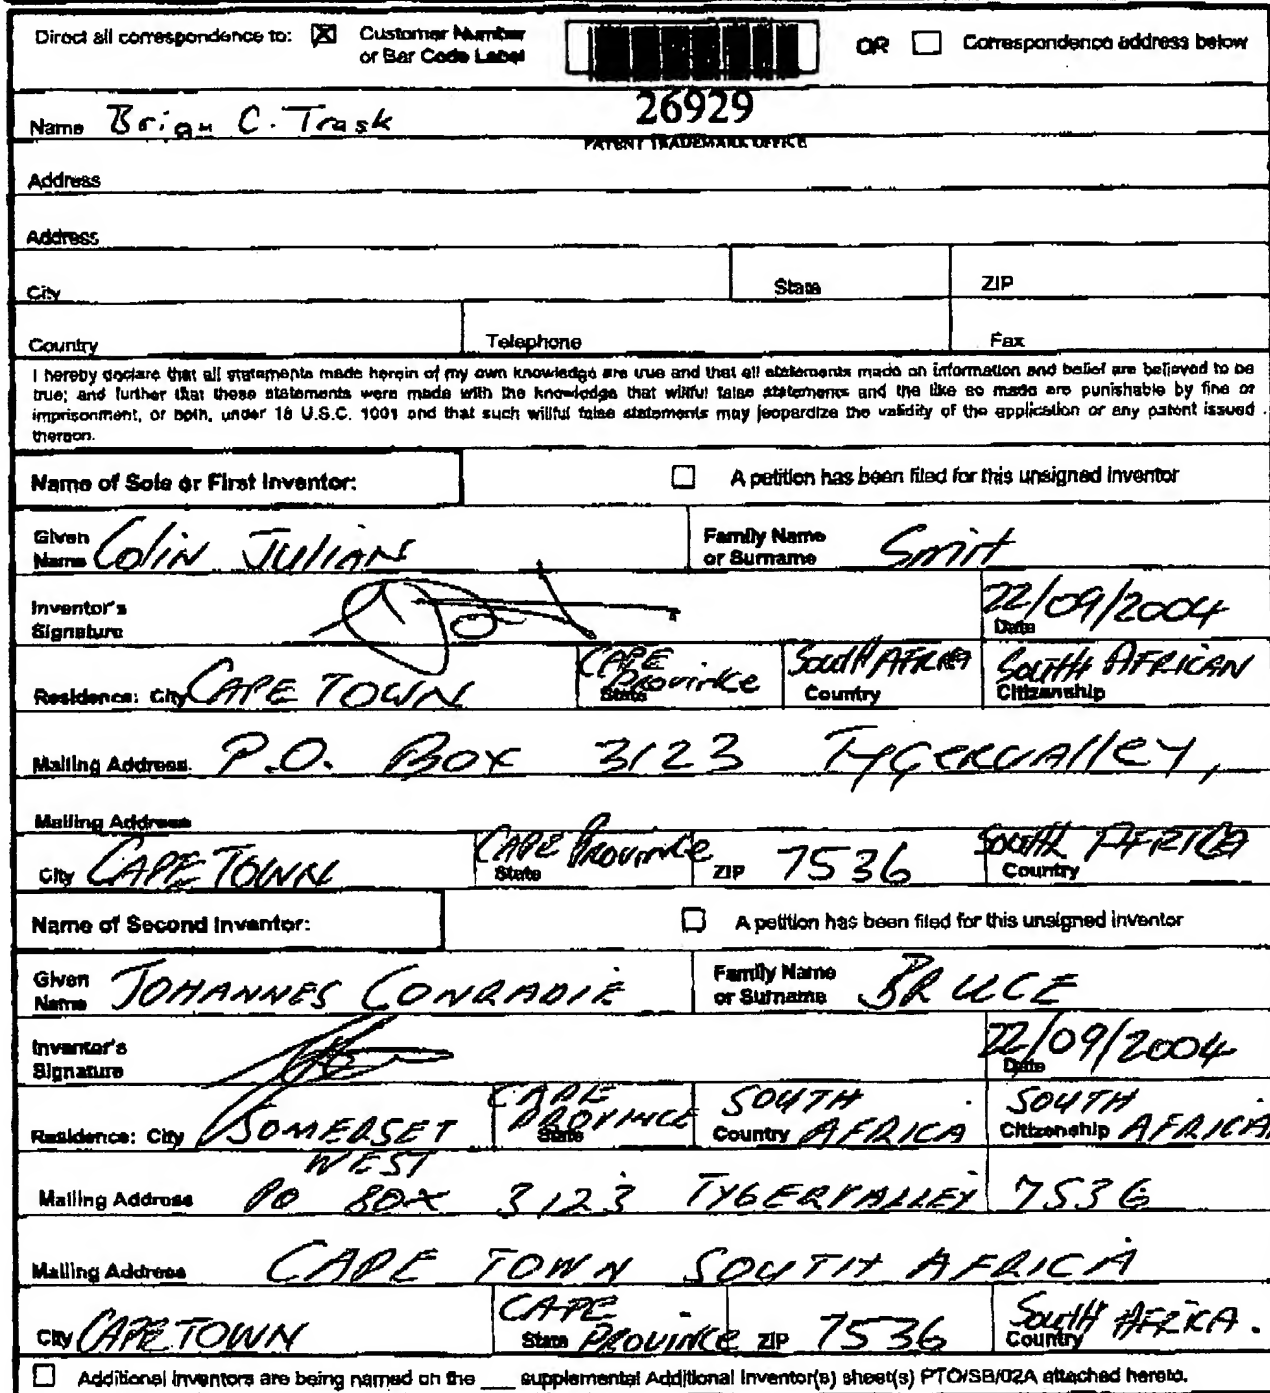 Direct all correspondence to: ☒ Customer Number or Bar Code Label OR ☐ Correspondence address below
26929
PATENT TRADEMARK OFFICE
Name Brian C. Trask
Address
Address
City State ZIP
Country Telephone Fax
I hereby declare that all statements made herein of my own knowledge are true and that all statements made on information and belief are believed to be
true; and further that these statements were made with the knowledge that willful false statements and the like so made are punishable by fine or
imprisonment, or both, under 18 U.S.C. 1001 and that such willful false statements may jeopardize the validity of the application or any patent issued
thereon.
Name of Sole or First Inventor: ☐ A petition has been filed for this unsigned inventor
Given Name Colin Julian Family Name or Surname Smit
Inventor's Signature 22/09/2004 Date
Residence: City CAPE TOWN CAPE Province State South AFRICA Country SOUTH AFRICAN Citizenship
Mailing Address P.O. Box 3123 Tygervalley,
Mailing Address
City CAPE TOWN CAPE Province State ZIP 7536 South AFRICA Country
Name of Second Inventor: ☐ A petition has been filed for this unsigned inventor
Given Name JOHANNES CONRADIE Family Name or Surname BRUCE
Inventor's Signature 22/09/2004 Date
Residence: City SOMERSET WEST CAPE PROVINCE State SOUTH AFRICA Country SOUTH AFRICA Citizenship
Mailing Address PO BOX 3123 TYGERVALLEY 7536
Mailing Address CAPE TOWN SOUTH AFRICA
City CAPE TOWN CAPE PROVINCE State ZIP 7536 South AFRICA. Country
☐ Additional inventors are being named on the ___ supplemental Additional Inventor(s) sheet(s) PTO/SB/02A attached hereto.